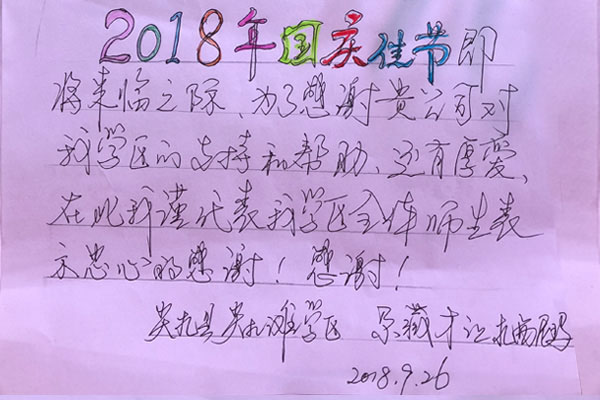 2018年国庆佳节即
将来临之际、为了感谢贵公司对
我学区的支持和帮助、还有厚爱、
在此我谨代表我学区全体师生表
示忠心的感谢！感谢！
学区
2018.9.26